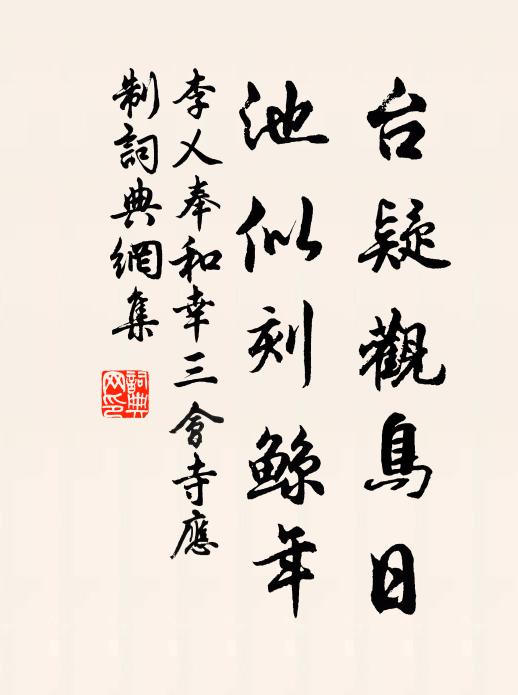 台疑觀鳥日
池似刻鲸年
李乂奉和幸三會寺應
制詞典網集
詞典
网印